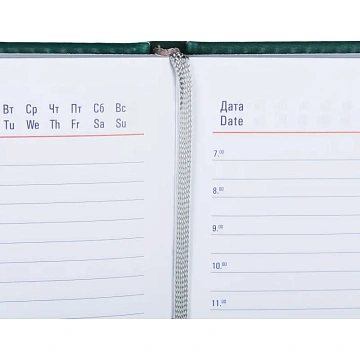 Вт Ср Чт Пт Сб Вс
Tu We Th Fr Sa Su
Дата
Date
7.00
8.00
9.00
10.00
11.00